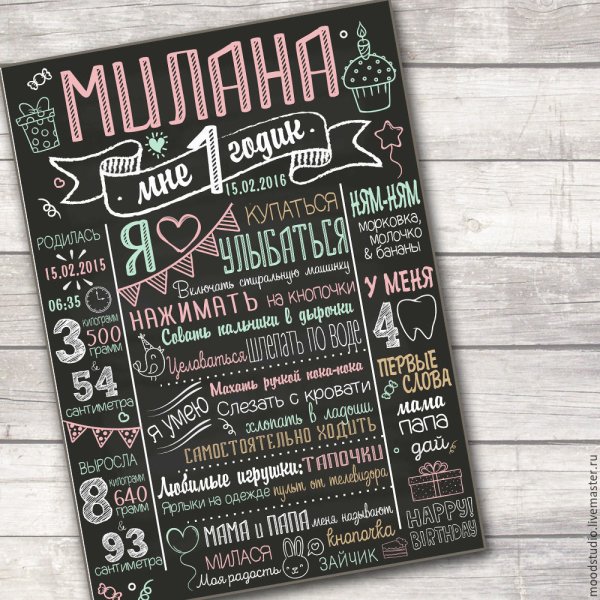 МИЛАНА
мне 1 годик
15.02.2016
РОДИЛАСЬ
15.02.2015
06:35
3 килограмм
500 грамм
&
54 сантиметра
ВЫРОСЛА
8 килограмм
640 грамм
&
93 сантиметра
Я
КУПАТЬСЯ
УЛЫБАТЬСЯ
Включать стиральную машинку
НАЖИМАТЬ на кнопочки
Совать пальчики в дырочки
Целоваться ШЛЕПАТЬ ПО ВОДЕ
Я умею
Махать ручкой пока-пока
Слезать с кровати
хлопать в ладоши
САМОСТОЯТЕЛЬНО ХОДИТЬ
Любимые игрушки: ТАПОЧКИ
Ярлыки на одежде пульт от телевизора
МАМА и ПАПА меня называют
МИЛАСЯ
кнопочка
Моя радость
ЗАЙЧИК
НЯМ-НЯМ
морковка,
молочко
& бананы
У МЕНЯ
4
ПЕРВЫЕ
СЛОВА
мама
ПАПА
дай
HAPPY!
BIRTHDAY
moodstudio.livemaster.ru